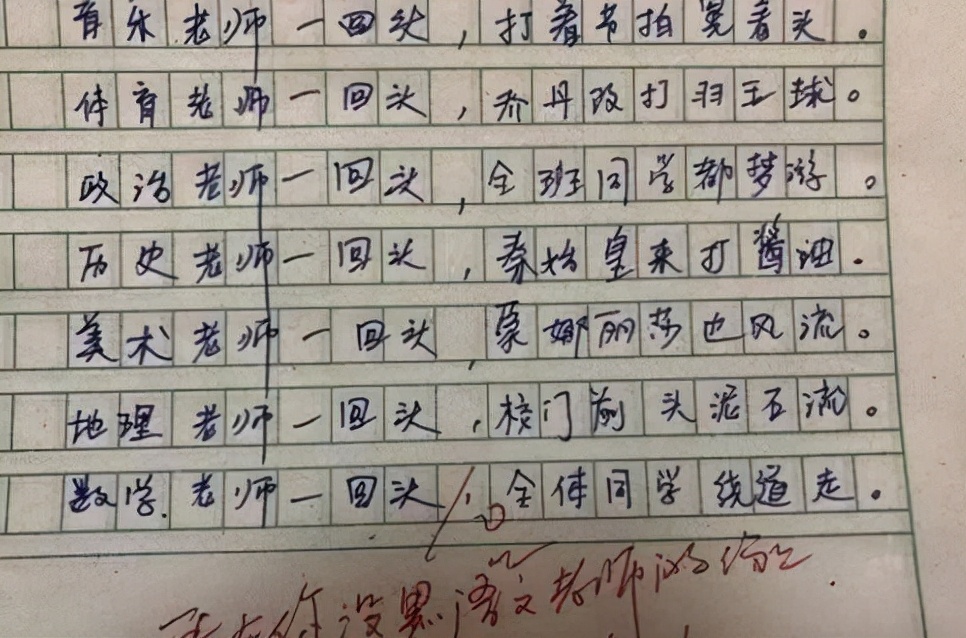 音乐老师一回头,打着节拍晃着头。
体育老师一回头,乔丹改打羽王球。
政治老师一回头,全班同学都梦游。
历史老师一回头,秦始皇来打酱油.
美术老师一回头,蒙娜丽莎也风流。
地理老师一回头,校门前头泥石流。
数学老师一回头,全体同学绕道走。
10
你没黑语文老师的份上.